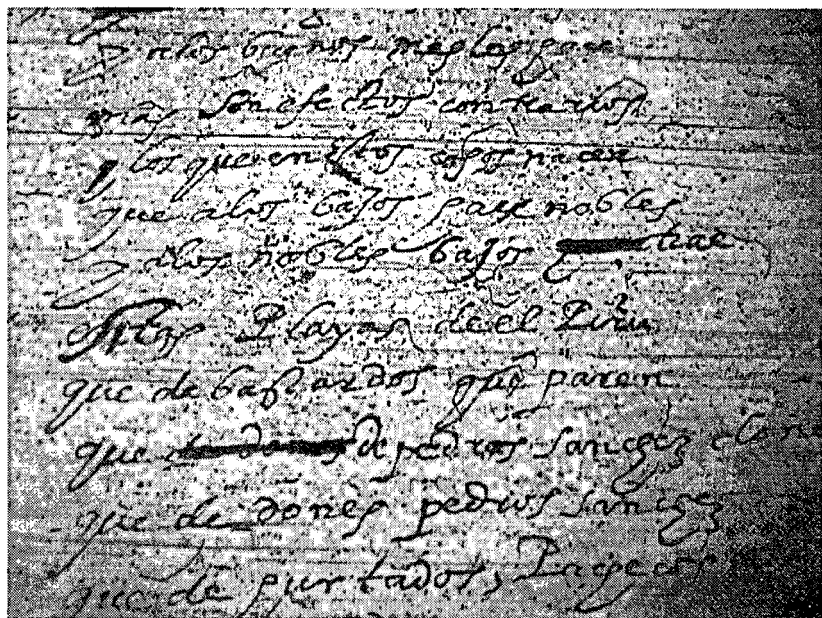 y a los buenos
mas son efectos contrarios
y los que en estos casos nacen
que a los bajos haze nobles
y a los nobles bajos trae
estas Playas de el Piru
que de bastardos que paren
que de pedros sanchez
que de dones pedros sanchez
que de hurtados, Pachecos